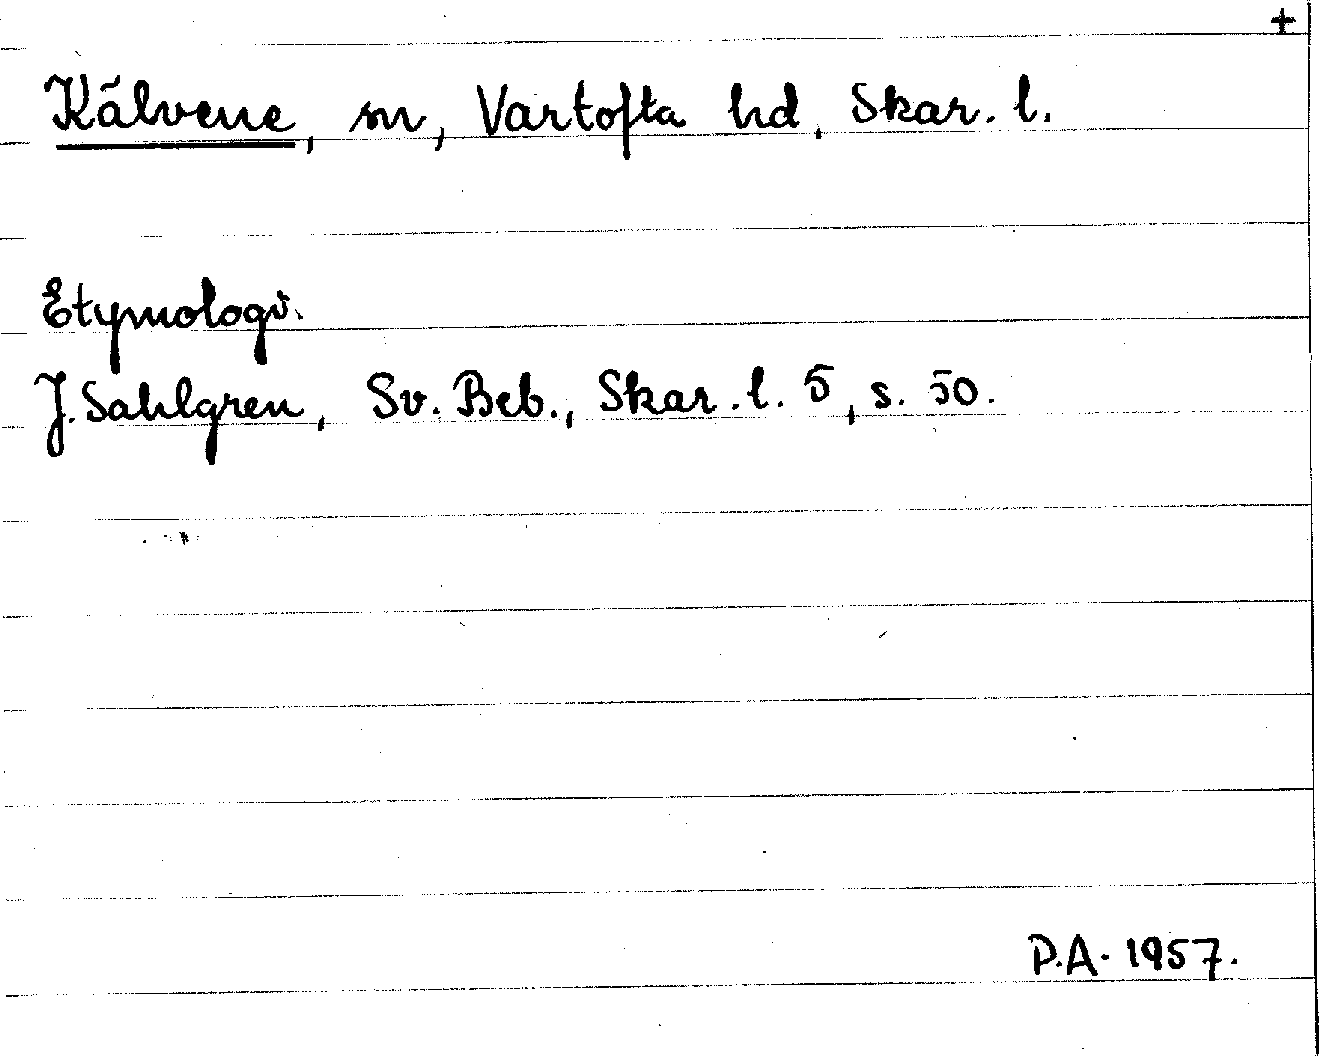 +
Kälvene, sn, Vartofta hd, Skar. l.
Etymologi.
J. Sahlgren, Sv. Beb., Skar. l. 5, s. 50.
P.A. 1957.